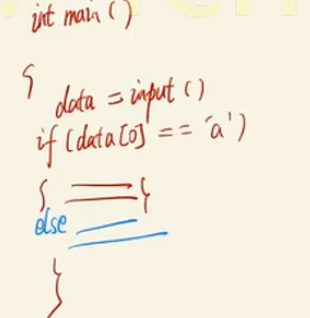 int main ( )
{
data = input ( )
if (data[0] == 'a')
{ }
else
}